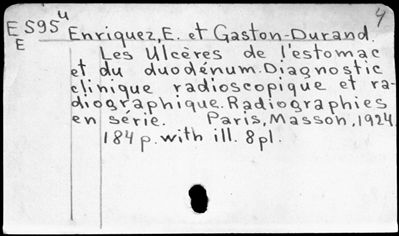 4
E S95u Enriquez, E. et Gaston-Durand.
E
Les Ulcères de l'estomac
et du duodénum. Diagnostic
clinique radioscopique et ra-
diographique. Radiographies
en série. Paris, Masson, 1924.
184 p. with ill. 8 pl.